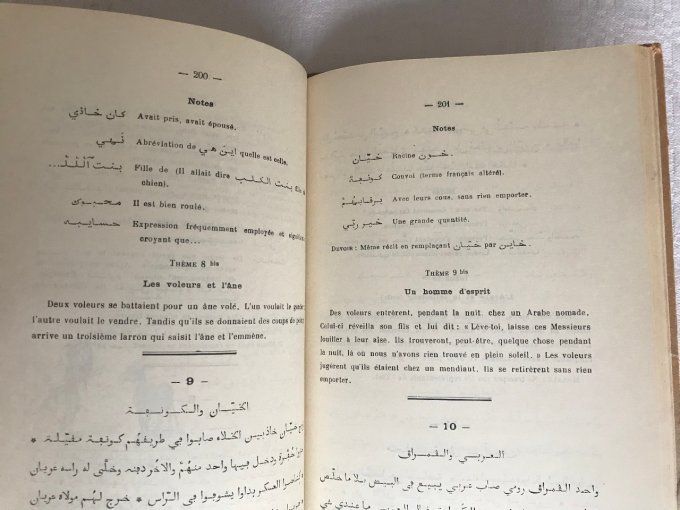 — 200 —
Notes
كان خاذي Avait pris, avait épousé.
نْهي Abréviation de اين هي quelle est celle.
بنت آلفذ... Fille de (Il allait dire بنت الكلب fille de
chien).
محبوك Il est bien roulé.
حسابيه Expression fréquemment employée et signifiant
croyant que...
THÈME 8 bis
Les voleurs et l'âne
Deux voleurs se battaient pour un âne volé. L'un voulait le garder
l'autre voulait le vendre. Tandis qu'ils se donnaient des coups de poing
arrive un troisième larron qui saisit l'âne et l'emmène.
— 9 —
الخيّان والكونبة
خيّان خاذيين الخلاء صابوا في طريفهُم كونبة مفيّلة *
حُفرة ودخل بيها واحد منهُمْ والآخر دفنه وخلّى له راسه عريان
العسكر بداوا يشوفوا في الراس * خرج لهُم مولاه عريان
— 201 —
Notes
خيّان Racine خـون.
كونبة Convoi (terme français altéré).
برفابهُم Avec leurs cous, sans rien emporter.
خير ربّي Une grande quantité.
DEVOIR : Même récit en remplaçant خيّان par خاين.
THÈME 9 bis
Un homme d'esprit
Des voleurs entrèrent, pendant la nuit, chez un Arabe nomade.
Celui-ci réveilla son fils et lui dit : « Lève-toi, laisse ces Messieurs
fouiller à leur aise. Ils trouveront, peut-être, quelque chose pendant
la nuit, là où nous n'avons rien trouvé en plein soleil. » Les voleurs
jugèrent qu'ils étaient chez un mendiant. Ils se retirèrent sans rien
emporter.
— 10 —
العربي والفمراڢ
واحد الفمراڢ رومي صاب عربي يبيع في البيض